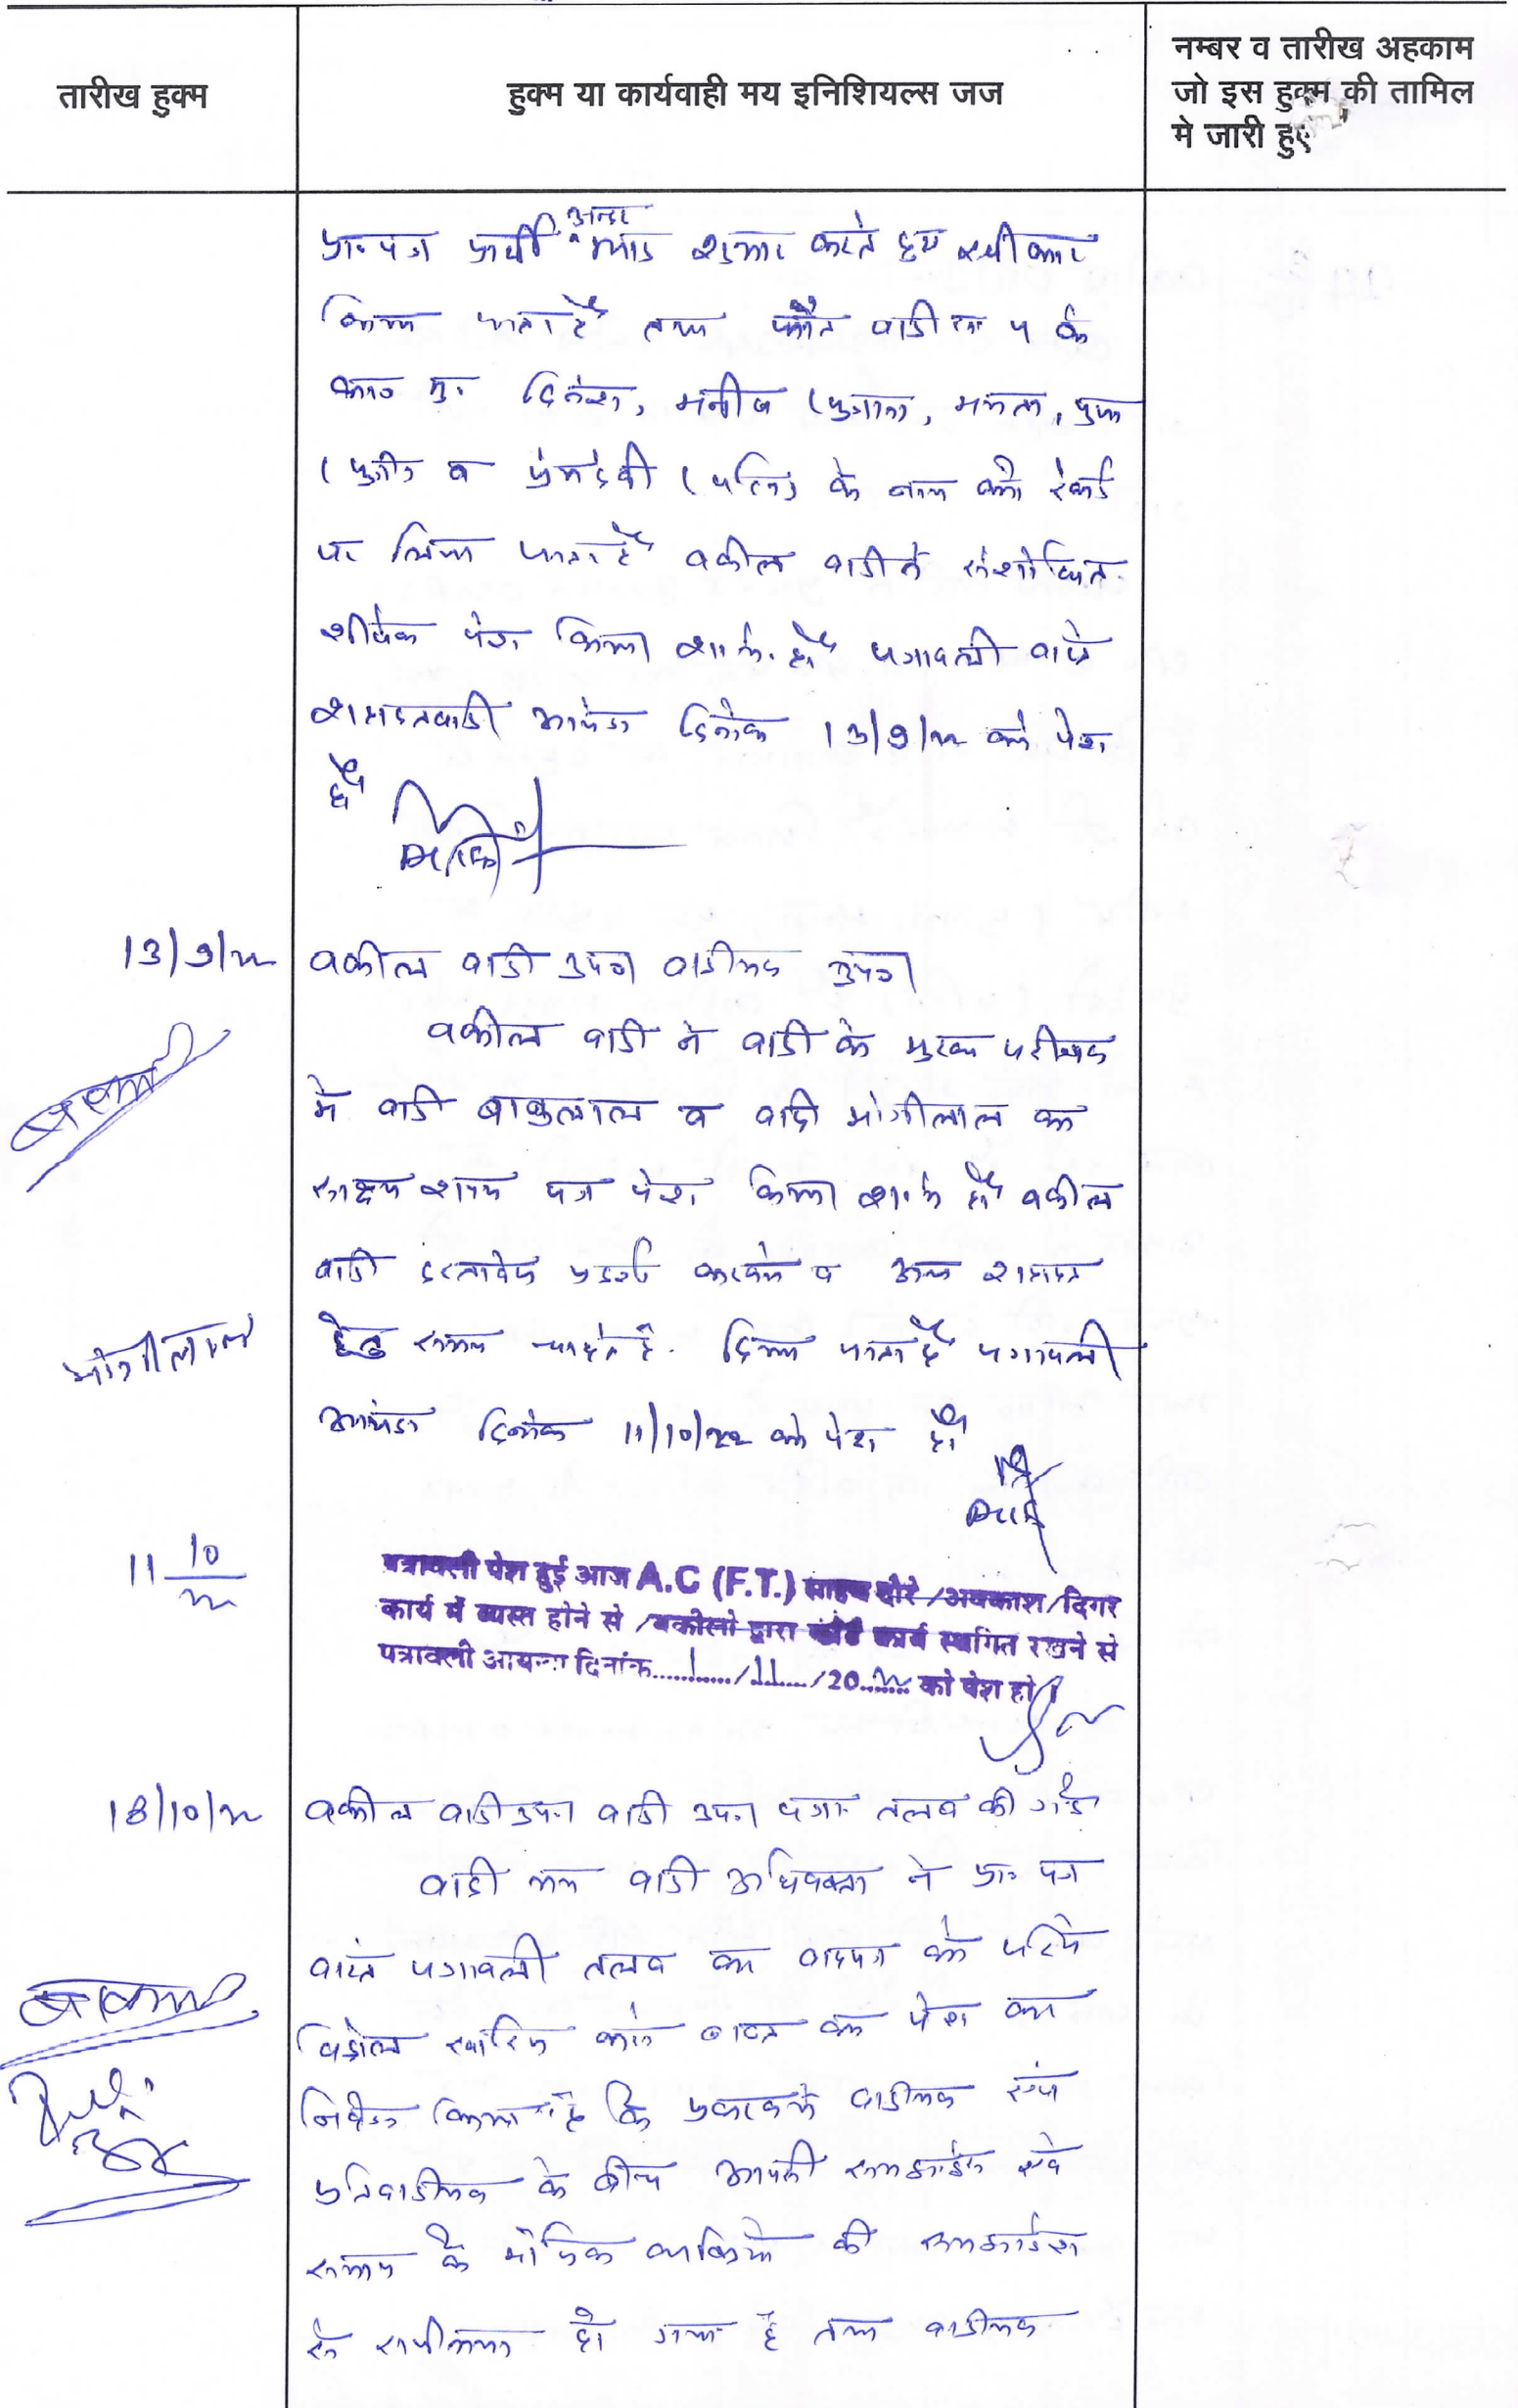 तारीख हुक्म
हुक्म या कार्यवाही मय इनिशियल्स जज
नम्बर व तारीख अहकाम
जो इस हुक्म की तामिल
मे जारी हुए
अन्दर
प्रा० पत्र प्रार्थी म्याद शुमार करते हुए स्वीकार
किया जाता है तथा फौत वादी सं० के
का० मु० दिनेश, मनीष (पुत्रान, ममता, पुष्पा
(पुत्री) व प्रेमदेवी (पत्नि) के नाम को रेकर्ड
पर लिया जाता है वकील वादी ने संशोधित
शीर्षक पेश किया शा.मि. हो पत्रावली वास्ते
शहादतवादी आयंदा दिनांक 13/9/22 को पेश
हो
13/9/22
वकील वादी उप० वादीगण उप०
वकील वादी ने वादी के मुख्य परीक्षण
मे वादी बाबुलाल व वादी मांगीलाल का
साक्ष्य शपथ पत्र पेश किया शा.मि. हो वकील
वादी दस्तावेज प्रदर्श करवाने व अन्य शहादत
मांगीलाल
हेतु समय चाहते है. दिया जाता है पत्रावली
आयंदा दिनांक 11/10/22 को पेश हो
11 10/22
पत्रावली पेश हुई आज A.C (F.T.) साहब दौरे/अवकाश/दिगर
कार्य में व्यस्त होने से /वकीलो द्वारा कोर्ट कार्य स्थगित रखने से
पत्रावली आयन्दा दिनांक 1/11/2022 को पेश हो।
18/10/22
वकील वादी उप० वादी उप० पत्रा० तलब की गई
वादी मय वादी अधिवक्ता ने प्रा० पत्र
वास्ते पत्रावली तलब कर वादपत्र को जरिये
विड्रोल खारिज करने बाबत का पेश कर
निवेदन किया है कि प्रकरण मे वादीगण एवं
प्रतिवादीगण के बीच आपसी समझाईश एवं
समाज के मौजिज व्यक्तियो की समझाईश
से राजीनामा हो गया है तथा वादीगण